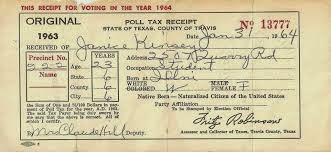 THIS RECEIPT FOR VOTING IN THE YEAR 1964
ORIGINAL POLL TAX RECEIPT Nº 13777
1963 STATE OF TEXAS, COUNTY OF TRAVIS Date Jan 31 1964
RECEIVED OF Janice Kinsey
Precinct No. Age Address 2507 Quarry Rd
222 Years 23 Occupation Student
The Sum of One and 75/100 Dollars in payment of Poll Tax for the A.D. 1963. The said Tax Payer being duly sworn by me says that the above is correct; all of which I certify.
WHITE MALE
COLORED FEMALE F
Native Born—Naturalized Citizen of the United States
Party Affiliation
To Be Stamped by Election Official
By Mrs Claude Hill Deputy
Fritz Robinson
Assessor and Collector of Taxes, Travis County, Texas